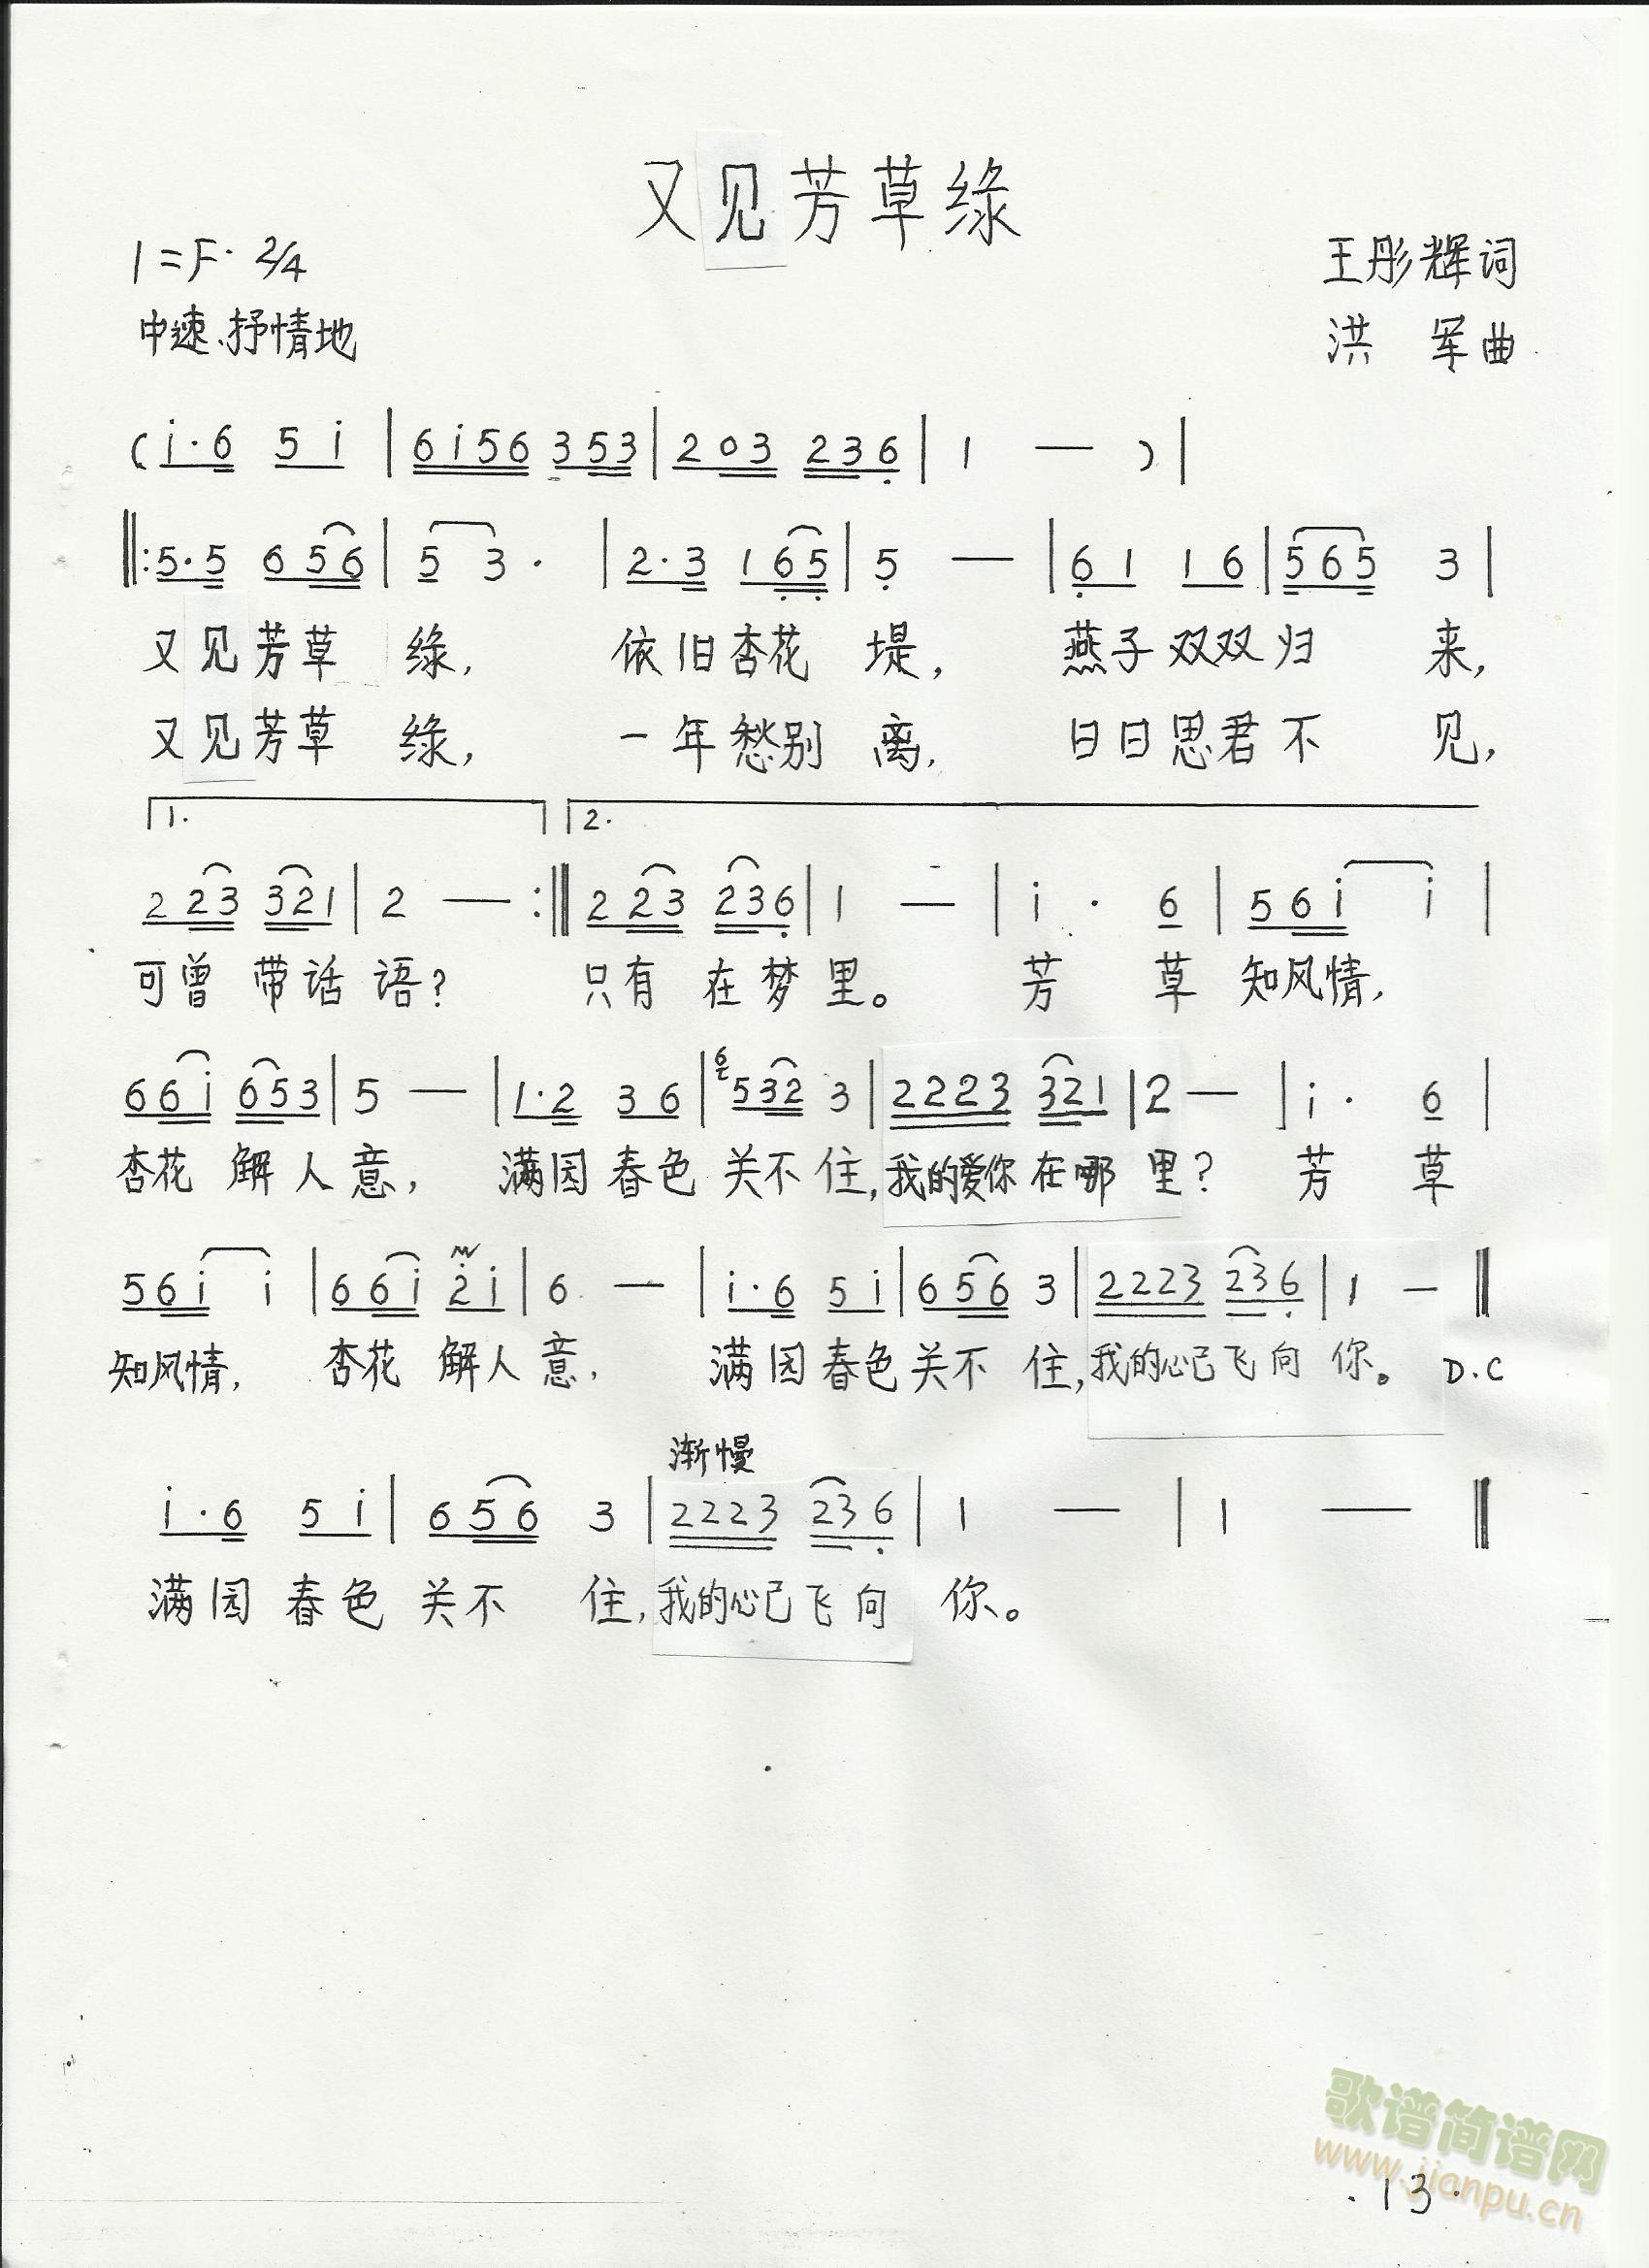 又见芳草绿
1=F 2/4
王彤辉词
中速、抒情地
洪 军曲
(i·6 5 i | 6i56 353 | 203 236 | 1 — ) |
‖:5·5 656 | 5 3· | 2·3 165 | 5 — | 61 16 | 565 3 |
又见芳草 绿, 依旧杏花 堤, 燕子双双归 来,
又见芳草 绿, 一年愁别 离, 日日思君不 见,
1. 2.
223 321 | 2 — :‖ 223 236 | 1 — | i · 6 | 56i i |
可曾 带话 语? 只有 在梦 里。 芳 草 知风情,
66i 653 | 5 — | 1·2 36 | 6 532 3 | 2223 321 | 2 — | i · 6 |
杏花 解人意, 满园春色关不住,我的爱你在哪里? 芳 草
56i i | 66i 2i | 6 — | i·6 5i | 656 3 | 2223 236 | 1 — ‖
知风情, 杏花 解人意, 满园春色关不 住,我的心已飞向 你。 D.C
渐慢
i·6 5i | 656 3 | 2223 236 | 1 — | 1 — ‖
满园 春色 关不 住,我的心已飞向 你。
歌谱简谱网
www.jianpu.cn
·13·